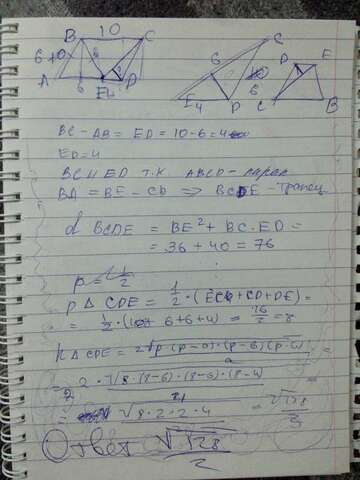 B 10 C
6
A 6 E 4 D
C
6
6
E 4 D
D E
C B
BC - AB = ED = 10 - 6 = 4
ED = 4
BC || ED т.к. ABCD - парал
BA = BE - CD => BCDE - трапец
d BCDE = BE² + BC · ED =
= 36 + 40 = 76
P = 1/2
P △ CDE = 1/2 · (EC + CD + DE) =
= 1/2 · (6 + 6 + 4) = 16/2 = 8
h △ CDE = 2√p (p-a) · (p-b) · (p-c) / a =
= 2 · √8 · (8-6) · (8-6) · (8-4)
= √8 · 2 · 2 · 4 = √128
Ответ √128 / 2